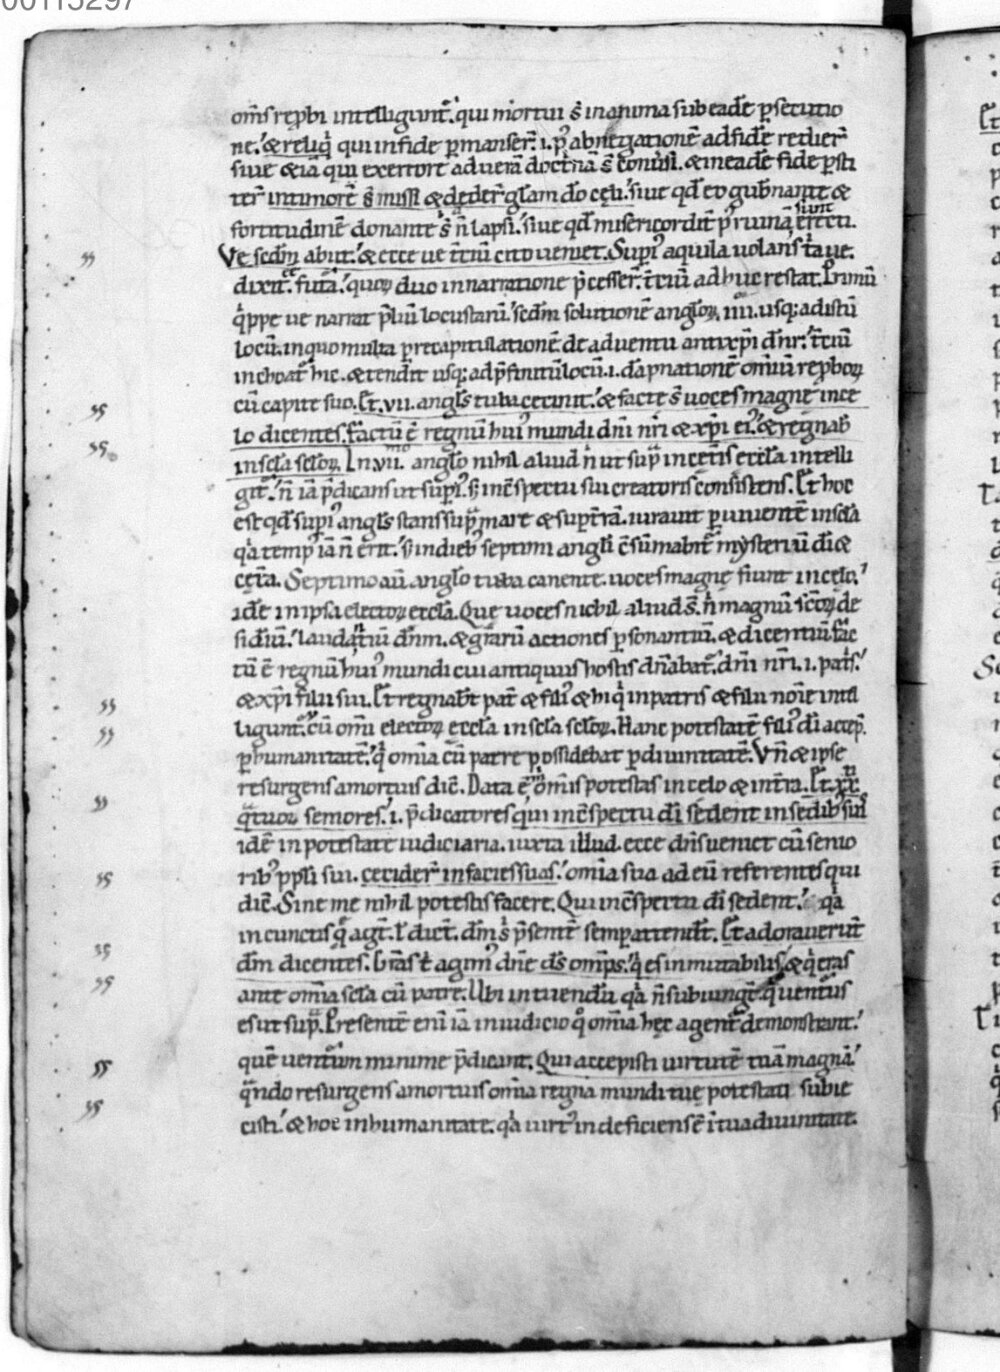 00115297
om̄s rep̄bi intelligunt᷑. qui mortui s̄t in anima sub eadē p̱secutio
ne. ⁊ reliq̇ qui in fide p̱manser̄. .i. p᷒ abnegationē ad fidē redier̄
siue ⁊ iā qui ex errore ad uerā doctrinā s̄t conuersi. ⁊ in eadē fide p̱sti
ter̄ in timorē s̄t missi ⁊ dęder̄ gl̄am dō cęli. siue qđ eo gub̄nante ⁊
fortitudinē donante s̄t n̄ lapsi. siue qđ misericordit̄ p᷒ ruinā sunt erecti.
Ve sedm̄ abiit. ⁊ ecce ue t̄ciū cito ueniet. Supi᷒ aquila uolans tria ue
dixit futura. quoꝝ duo in narratione p̄cesser̄. t̄ciū adhuc restat. Primū
q̇ppe ue narrat p̄liū locustarū. sedm̄ solutionē angloꝝ .iiii. usq; ad istū
locū. in quo multa p̱ recapitulationē de aduentu antixp̄i dn̄r. t̄ciū
inchoat᷑ hic. ⁊ tendit usq; ad p̄finitū locū .i. dāpnationē omiū rep̱boꝝ
cū capite suo. Et .vii. angls̄ tuba cecinit. ⁊ facte s̄t uoces magnę in cę
lo dicentes. factū ē regnū hui᷒ mundi dn̄i nr̄i ⁊ xp̄i ei᷒. ⁊ regnab̄
in scl̄a scl̄oꝝ. In .vii.mo anglo nihil aliud n̄ ut sup̄ in cet̄is eccl̄a intelli
git᷑. n̄ iā p̄dicans ut supi᷒. s; in c̄spectu sui creatoris consistens. Et hoc
est qđ supi᷒ angls̄ stans sup̄ mare ⁊ sup̱ t̄rā. iurauit p̱ uiuentē in scl̄a
q̇a temp᷒ iā n̄ erit. s; in dieb᷒ septimi angli c̄sūmabit᷑ mysteriū dī ⁊
cęt̄a. Septimo aū anglo tuba canente. uoces magnę fiunt in cęlo.
idē in ipsa electoꝝ eccl̄a. Que uoces nichil aliud s̄t. n̄ magnū sc̄oꝝ de
sidiū. laudantiū dn̄m. ⁊ gr̄arū actiones p̱sonantiū. ⁊ dicentiū fac
tū ē regnū hui᷒ mundi cui antiquus hostis dn̄abat᷑. dn̄i nr̄i. .i. patris.
⁊ xp̄i filii sui. Et regnab̄t pat̄ ⁊ fili᷒ ⁊ hi q̇ in patris ⁊ filii noīe intel
ligunt᷑. cū omī electoꝝ eccl̄a in scl̄a scl̄oꝝ. Hanc potestatē fili᷒ dī accep̄.
p̱ humanitatē. q̇ om̄ia cū patre possidebat p̱ diuinitatē. Vn̄ ⁊ ipse
resurgens a mortuis dic̄. Data ē m̊ om̄is potestas in celo ⁊ in t̄ra. Et .xx.
q̄tuor seniores. .i. p̄dicatores qui in c̄spectu dī sedent in sedib᷒ suis
idē in potestate iudiciaria. iuxta illud. ecce dn̄s ueniet cū senio
rib᷒ pp̄li sui. cecider̄ in facies suas. om̄ia sua ad eū referentes qui
dic̄. Sine me nihil potestis facere. Qui in c̄spectu dī sedent. q̇a
in cunctis q̄ agit. l̄ dic̄t. dm̄ s̄ p̄sentē semper attendit. Et adorauer̄t
dm̄ dicentes. Grās t̄ agim᷒ dn̄e ds̄ om̄ps. q̇ es inmutabilis. ⁊ q̇ eras
ante om̄ia scl̄a cū patre. Ubi intuendū q̇a n̄ subiungit. q̇ uentur᷒
es ut sup̄. Presentē enī iā in iudicio q̊ om̄ia hęc agent᷑ demonstrant.
quē uenturum minime p̄dicant. Qui accepisti uirtutē tuā magnā.
q̄ndo resurgens a mortuis om̄ia regna mundi tuę potestati subie
cisti. ⁊ hoc in humanitate. q̇a uirt᷒ indeficiens ē ī tua diuinitate.